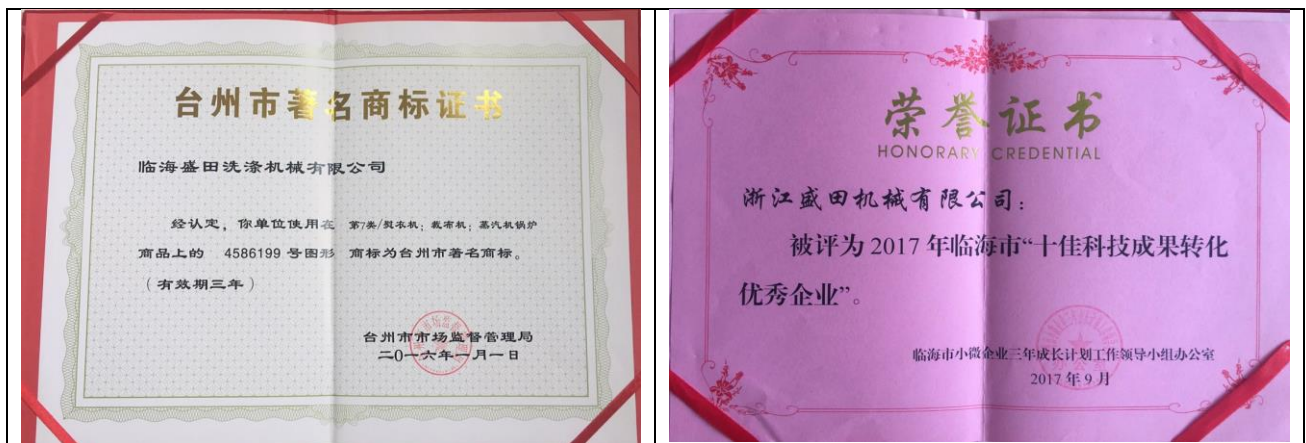 台州市著名商标证书
临海盛田洗涤机械有限公司
经认定，你单位使用在 第7类/熨衣机；裁布机；蒸汽机锅炉
商品上的 4586199 号图形 商标为台州市著名商标。
（有效期三年）
台州市市场监督管理局
二〇一六年一月一日
荣誉证书
HONORARY CREDENTIAL
浙江盛田机械有限公司：
被评为2017年临海市“十佳科技成果转化
优秀企业”。
临海市小微企业三年成长计划工作领导小组办公室
2017年9月